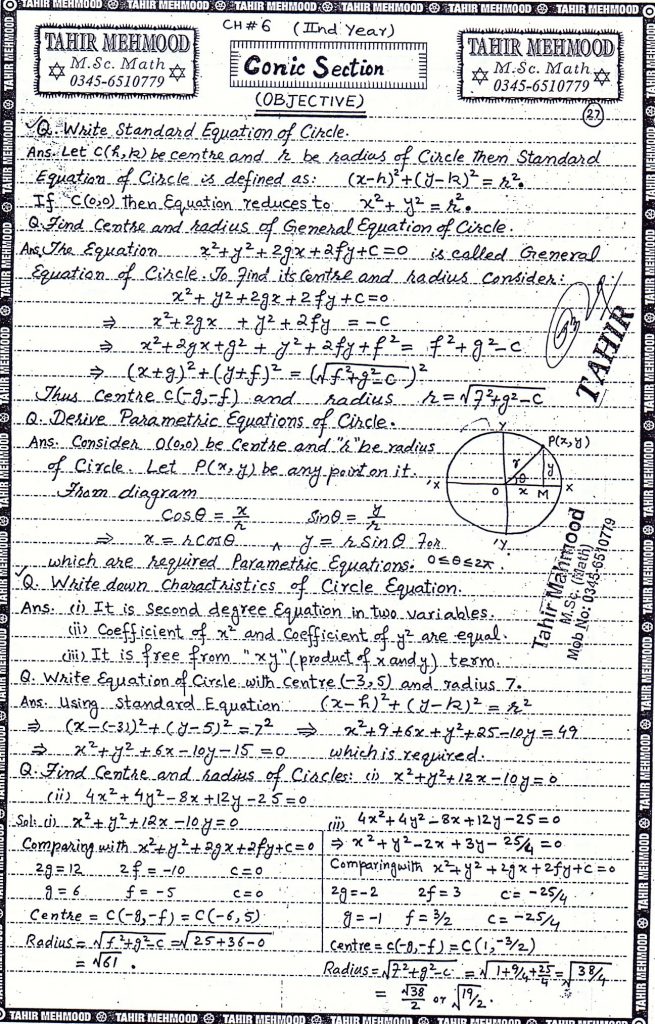 TAHIR MEHMOOD TAHIR MEHMOOD TAHIR MEHMOOD TAHIR MEHMOOD TAHIR MEHMOOD
CH#6 (IInd Year)
TAHIR MEHMOOD
M.Sc. Math
0345-6510779
Conic Section
(OBJECTIVE)
TAHIR MEHMOOD
M.Sc. Math
0345-6510779
27
Q. Write Standard Equation of Circle.
Ans. Let C(h,k) be centre and r be radius of Circle then Standard
Equation of Circle is defined as: (x-h)²+(y-k)²=r².
If C(0,0) then Equation reduces to x²+y²=r².
Q. Find Centre and radius of General Equation of Circle.
Ans. The Equation x²+y²+2gx+2fy+c=0 is called General
Equation of Circle. To find its Centre and radius consider:
x²+y²+2gx+2fy+c=0
⇒ x²+2gx +y²+2fy = -c
⇒ x²+2gx+g²+y²+2fy+f²= f²+g²-c
⇒ (x+g)²+(y+f)² = (√f²+g²-c)²
Thus Centre C(-g,-f) and radius r=√f²+g²-c
TAHIR
Q. Derive Parametric Equations of Circle.
Ans. Consider O(0,0) be Centre and "r" be radius
of Circle. Let P(x,y) be any point on it.
From diagram
Cosθ = x/r Sinθ = y/r
⇒ x = rCosθ ∧ y = rSinθ For
which are required Parametric Equations. 0≤θ≤2π
Y
P(x,y)
r
y
θ
'X
O
x
M
X
'Y
Tahir Mahmood
M.Sc. (Math)
Mob No: 0345-6510779
Q. Write down Charactristics of Circle Equation.
Ans. (i) It is second degree Equation in two variables.
(ii) Coefficient of x² and Coefficient of y² are equal.
(iii) It is free from "xy" (product of x and y) term.
Q. Write Equation of Circle with Centre (-3,5) and radius 7.
Ans. Using Standard Equation (x-h)²+(y-k)²=r²
⇒ (x-(-3))²+(y-5)²=7² ⇒ x²+9+6x+y²+25-10y=49
⇒ x²+y²+6x-10y-15=0 which is required.
Q. Find Centre and radius of Circles: (i) x²+y²+12x-10y=0
(ii) 4x²+4y²-8x+12y-25=0
Sol: (i) x²+y²+12x-10y=0
Comparing with x²+y²+2gx+2fy+c=0
2g=12 2f=-10 c=0
g=6 f=-5 c=0
Centre = C(-g,-f) = C(-6,5)
Radius = √f²+g²-c = √25+36-0
= √61.
(ii) 4x²+4y²-8x+12y-25=0
⇒ x²+y²-2x+3y-25/4=0
Comparing with x²+y²+2gx+2fy+c=0
2g=-2 2f=3 c=-25/4
g=-1 f=3/2 c=-25/4
Centre = C(-g,-f) = C(1,-3/2)
Radius = √f²+g²-c = √1+9/4+25/4 = √38/4
= √38/2 or √19/2.
TAHIR MEHMOOD TAHIR MEHMOOD TAHIR MEHMOOD TAHIR MEHMOOD TAHIR MEHMOOD